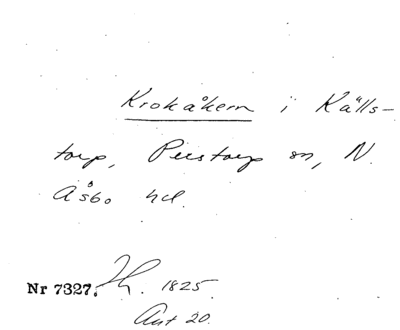 Krokåkern i Källs-
torp, Perstorp sn, N.
Åsbo hd.
Nr 7327. 1825.
Akt 20.